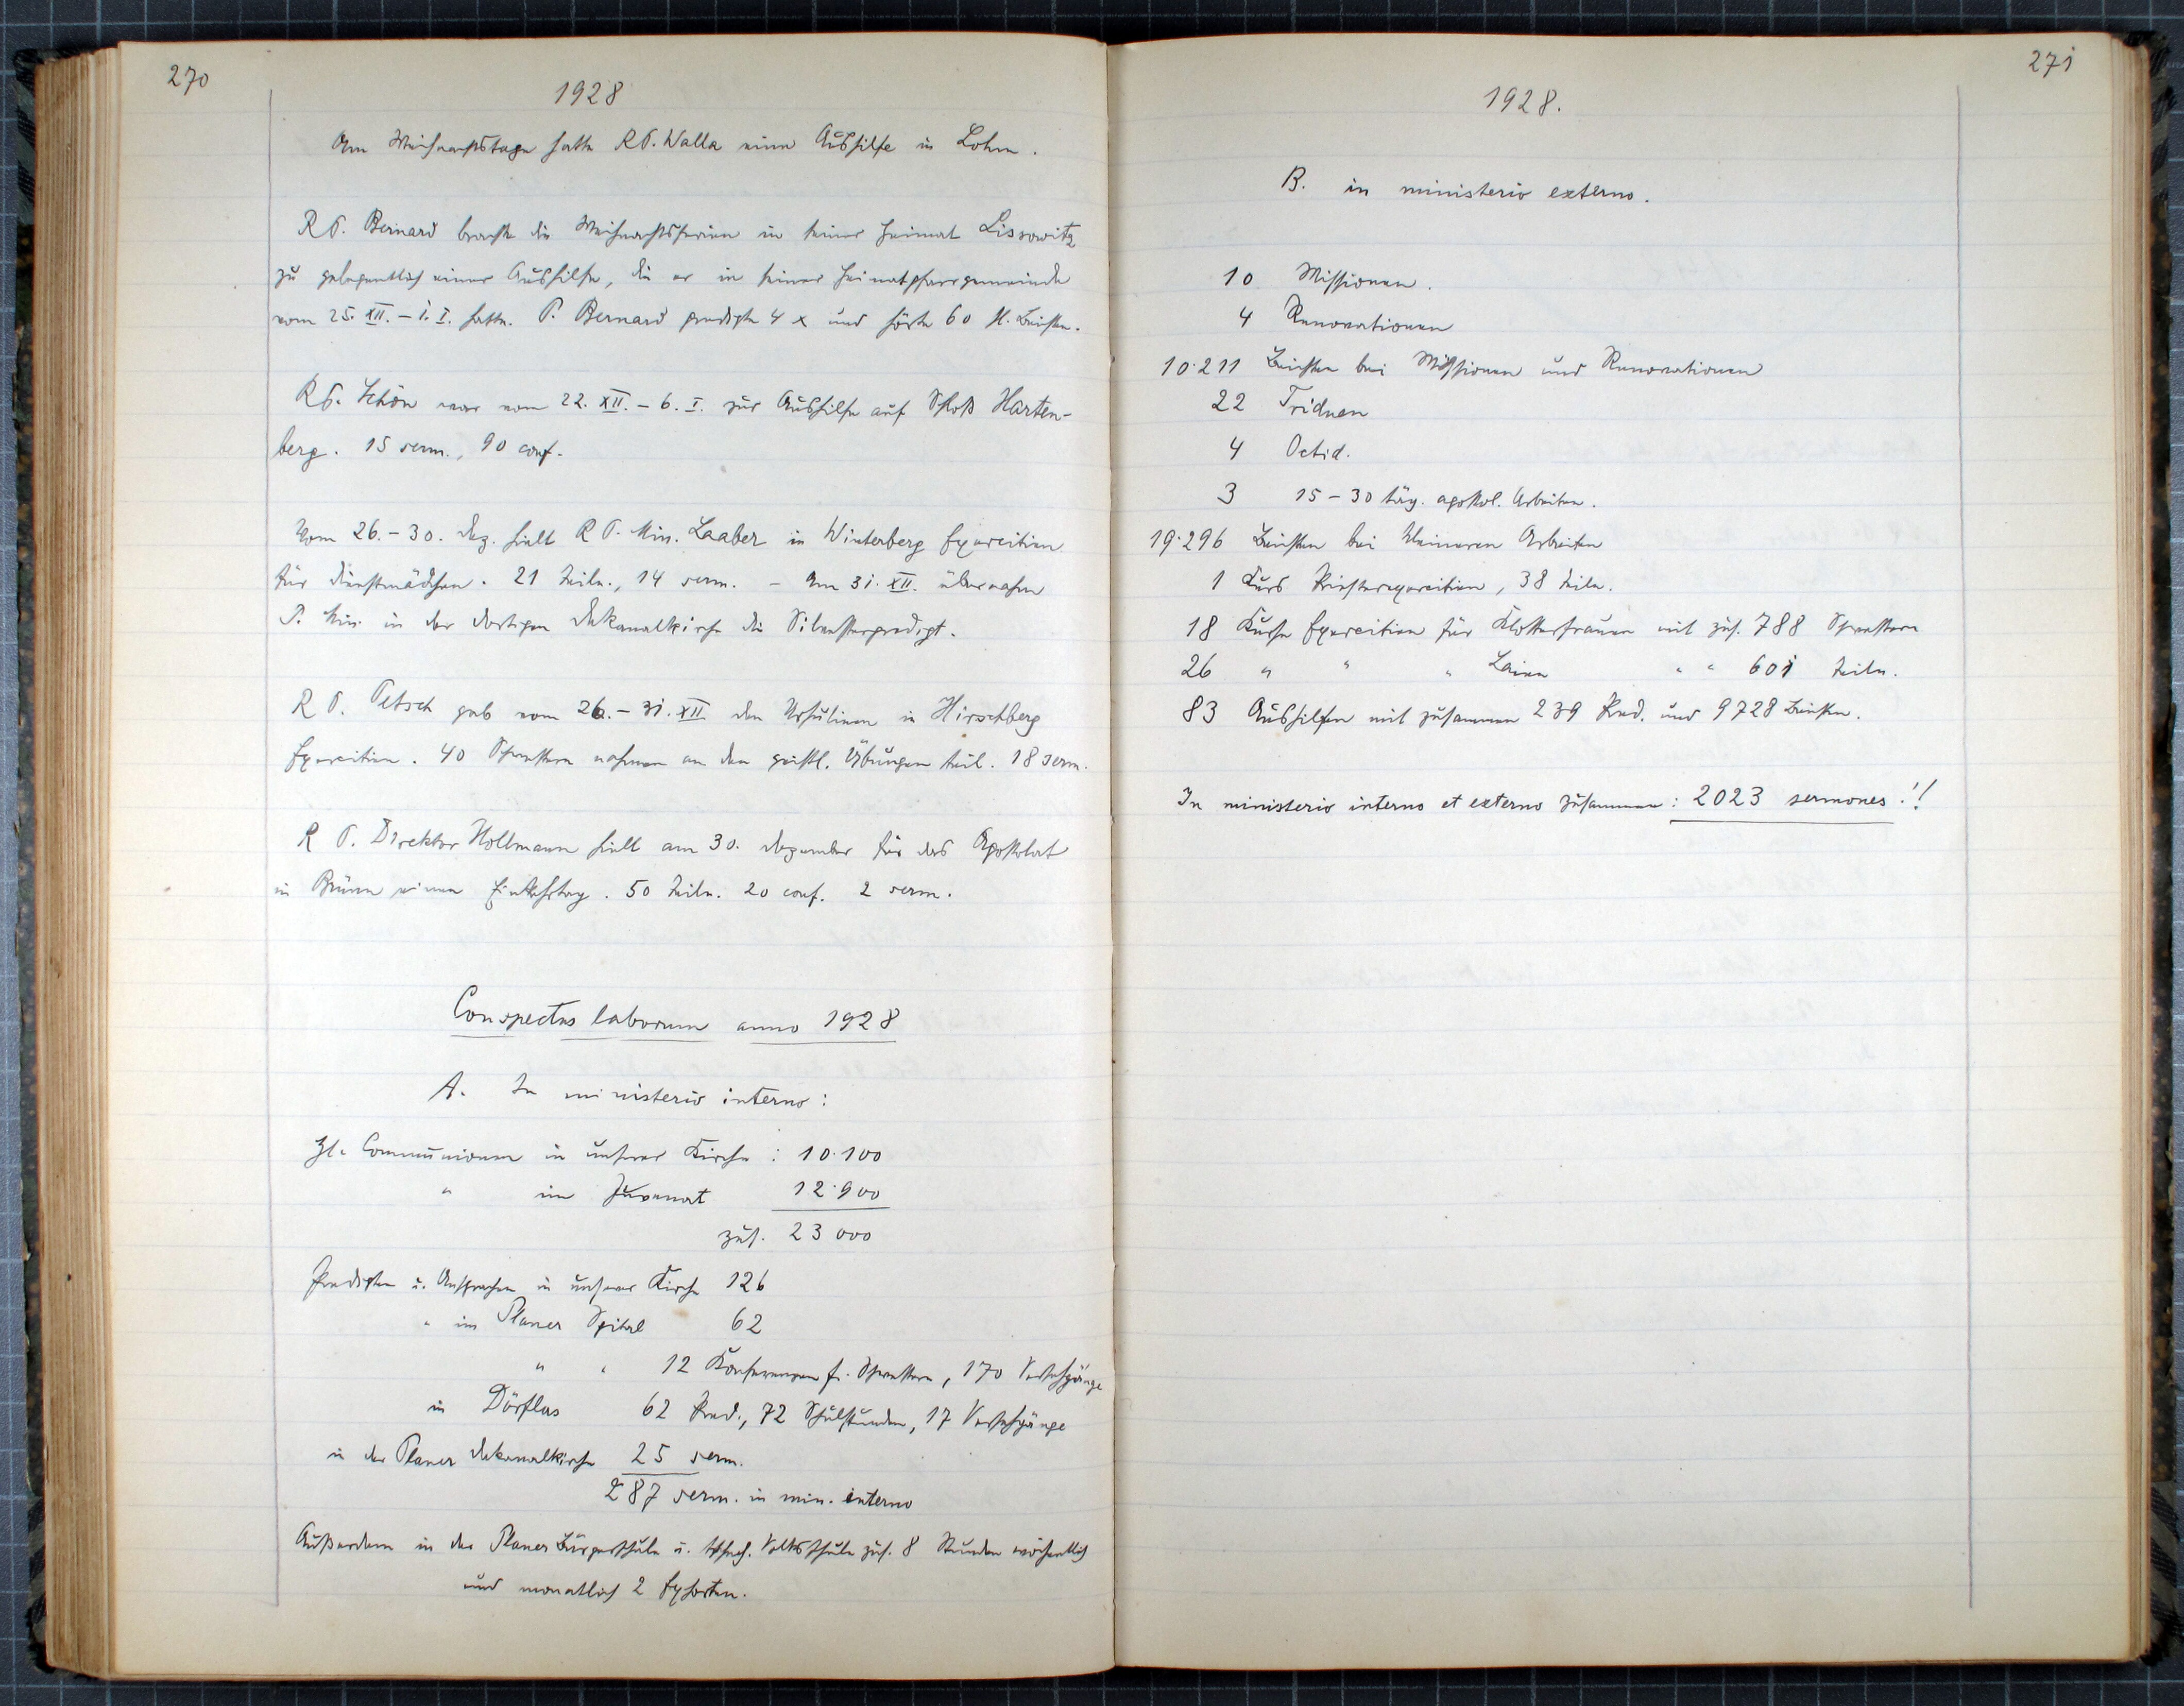 270
1928
Am Weihnachtstage hatte R.P. Walla eine Aushilfe in Lohm.
R.P. Bernard brachte die Weihnachtsferien in seiner Heimat Lissowitz
zu gelegentlich einer Aushilfe, die er in seiner Heimatpfarrgemeinde
vom 25. XII. – 1. I. hatte. P. Bernard predigte 4 x und hörte 60 hl. Beichten.
R.P. Schön war vom 22. XII. – 6. I. zur Aushilfe auf Schloß Harten-
berg. 15 serm., 90 conf.
Vom 26. – 30. Dez. hielt R.P. Min. Laaber in Winterberg Exercitien
für Dienstmädchen. 21 Teiln., 14 serm. – Am 31. XII. übernahm
P. Min. in der dortigen Dekanalkirche die Silvesterpredigt.
R.P. Petsch gab vom 26. – 31. XII den Ursulinen in Hirschberg
Exercitien. 40 Schwestern nahmen an den geistl. Übungen teil. 18 serm.
R P. Direktor Hollmann hielt am 30. Dezember für das Apostolat
in Brünn einen Einkehrtag. 50 Teiln. 20 conf. 2 serm.
Conspectus laborum anno 1928
A. In ministerio interno:
Hl. Communionen in unserer Kirche: 10.100
" im Juvenat 12.900
zus. 23 000
Predigten u. Ansprachen in unserer Kirche 126
" im Planer Spital 62
" " 12 Konferenzen f. Schwestern, 170 Versehgänge
in Dörflas 62 Pred., 72 Schulstunden, 17 Versehgänge
in der Planer Dekanalkirche 25 serm.
287 serm. in min. interno
Außerdem in der Planer Bürgerschule u. tschech. Volksschule zus. 8 Stunden wöchentlich
und monatlich 2 Exhorten.
271
1928.
B. in ministerio externo.
10 Missionen.
4 Renovationen
10.211 Beichten bei Missionen und Renovationen
22 Triduen
4 Octid.
3 15 – 30 täg. apostol. Arbeiten.
19.296 Beichten bei kleineren Arbeiten
1 Kurs Priesterexercitien, 38 Teiln.
18 Kurse Exercitien für Klosterfrauen mit zus. 788 Schwestern
26 " " " Laien " " 601 Teiln.
83 Aushilfen mit zusammen 239 Pred. und 9728 Beichten.
In ministerio interno et externo zusammen: 2023 sermones!!